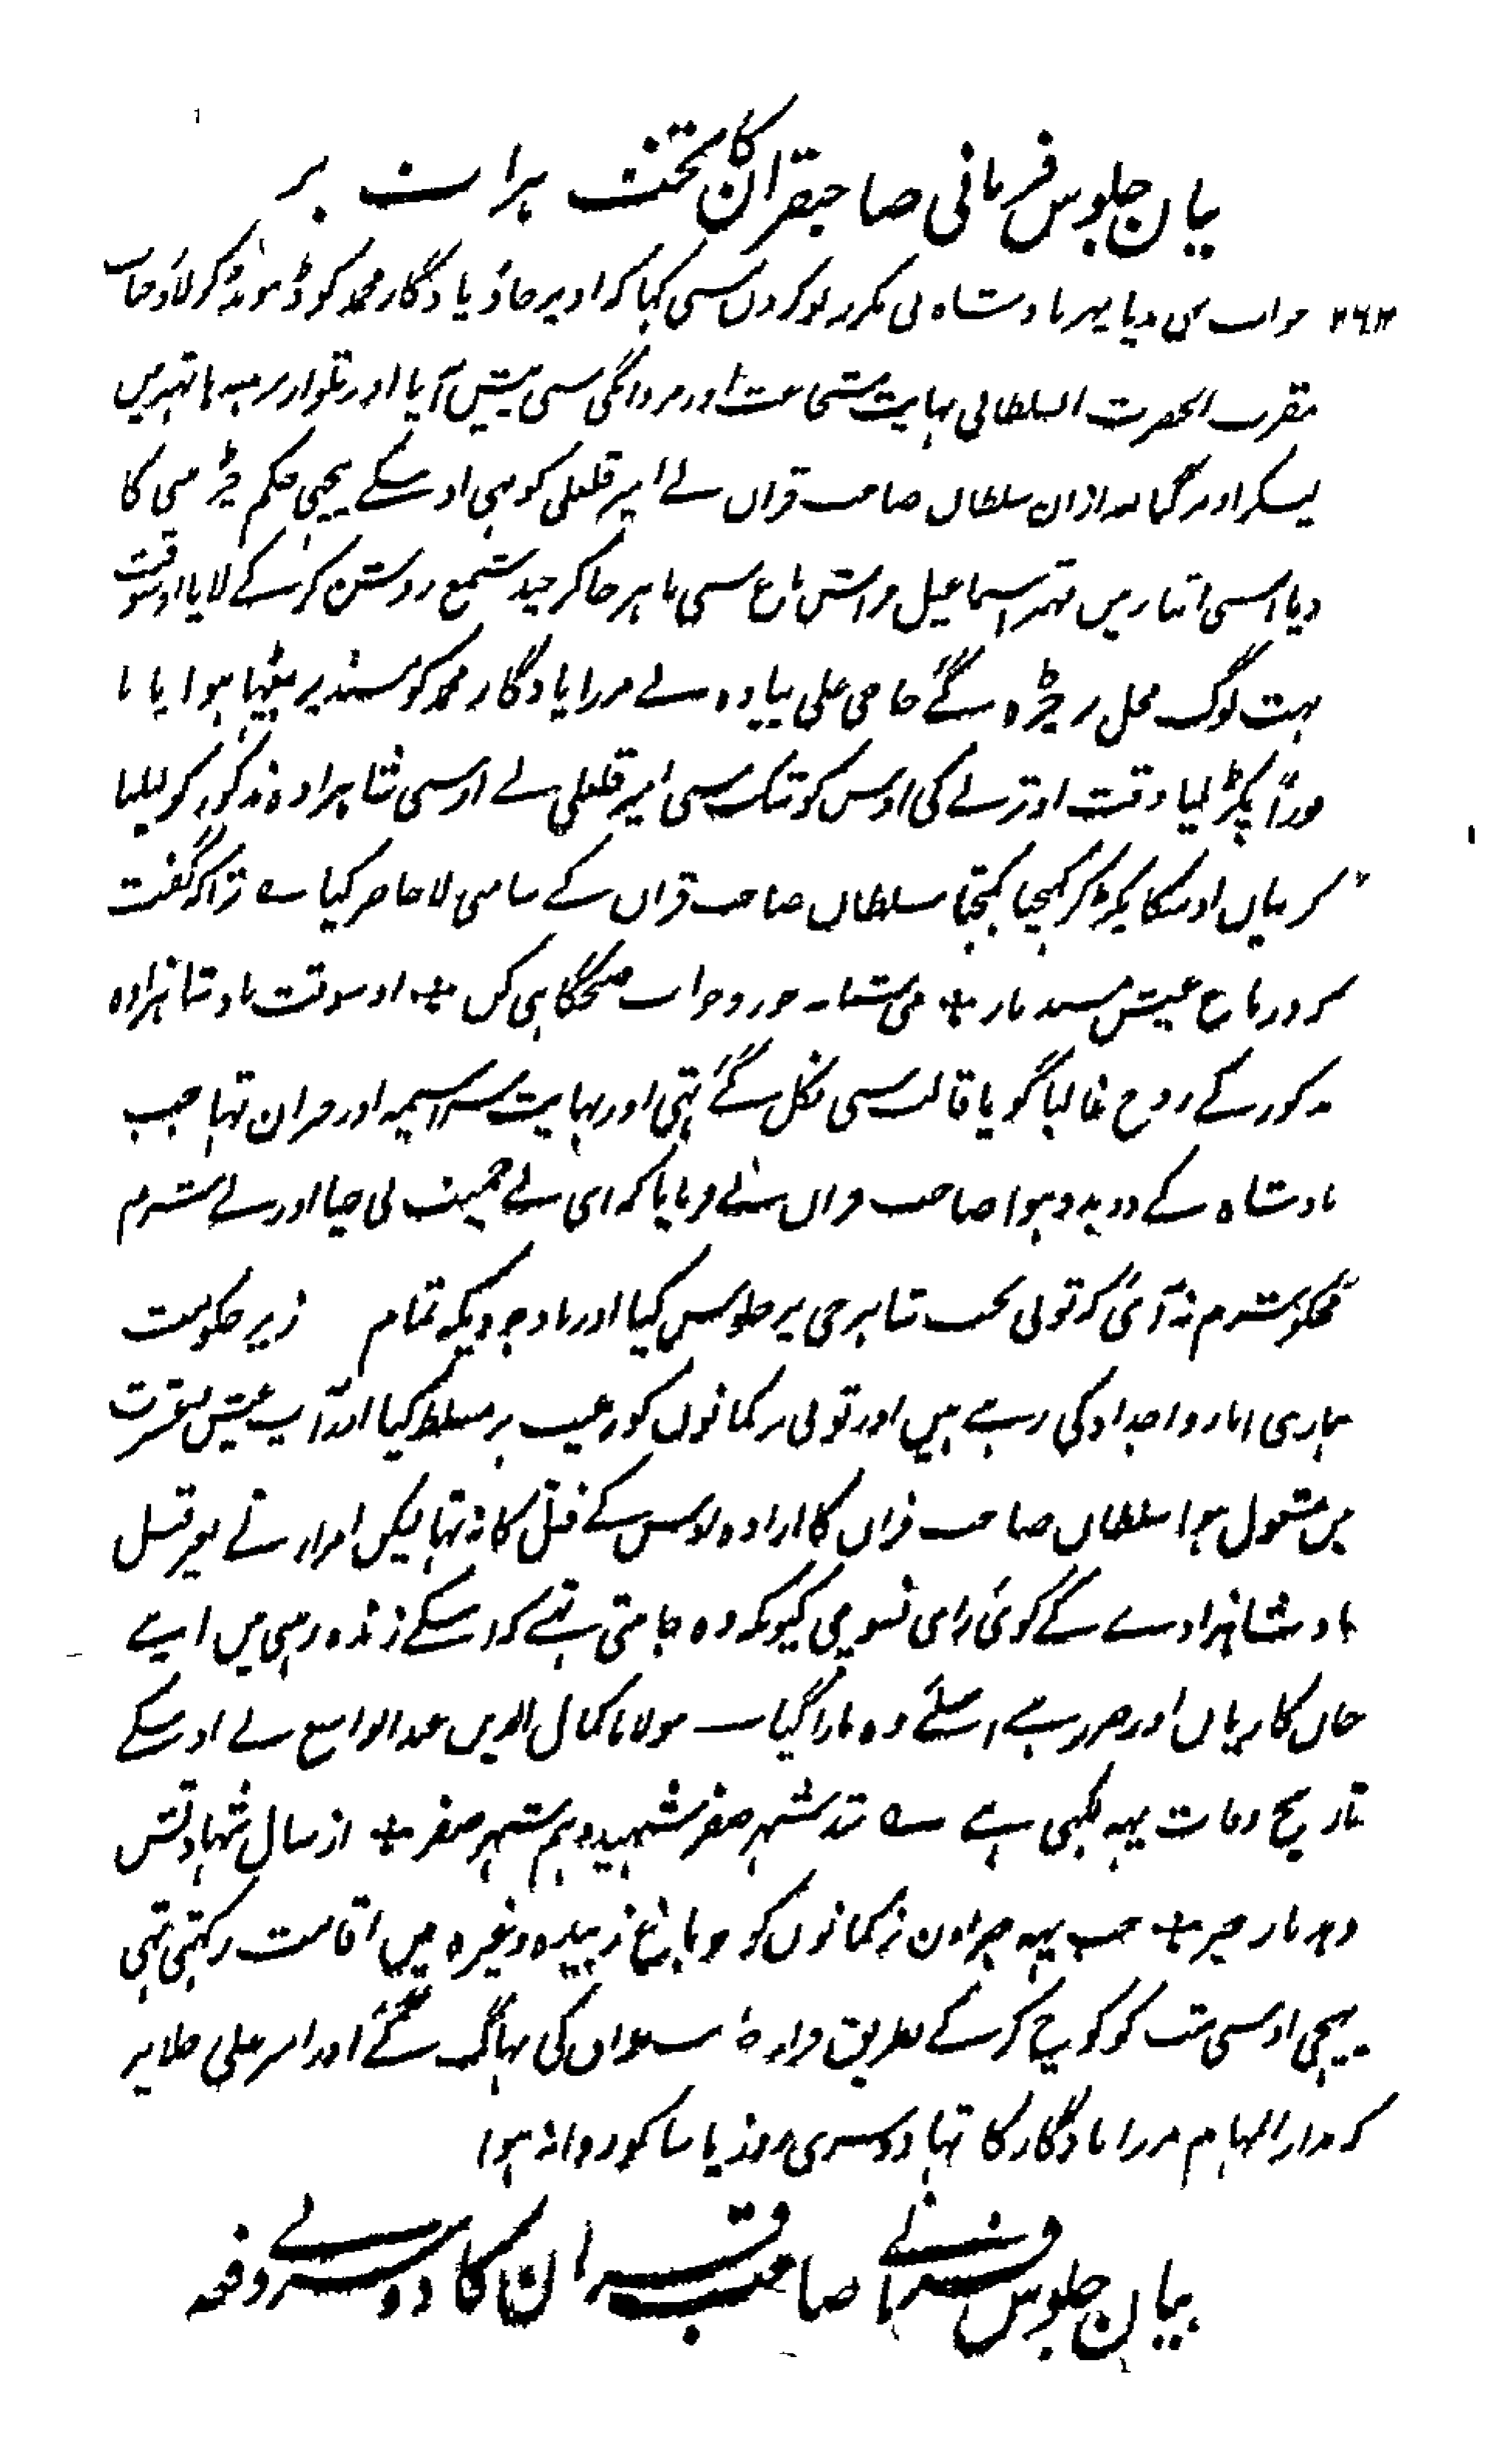 بیان جلوس فرمانی صاحبقران کا تخت ہرات پر
۲۶۲ جواب نہ دیا پہر بادشاہ نی مکرر نوکروں سی کہا کہ اوپر جاؤ یادگار محمد کو ڈہونڈہ کر لاؤ جناب
مقرب الحضرت السلطانی نہایت شجاعت اور مردانگی سی پیش آیا اور تلوار برہنہ ہاتہہ میں
لیکر اوپر گیا بعد ازان سلطان صاحب قران نے امیر قلعلی کو بہی اوسکے پیچہی حکم چڑہنی کا
دیا اسی اثنار میں مہتر اسماعیل فراش باغ سی باہر جا کر چند شمع روشن کر کے لایا اوسوقت
بہت لوگ محل پر چڑہ گئے حاجی علی پیادہ نے مرزا یادگار محمد کو مسند پر بیٹہا ہوا پایا
فوراً پکڑ لیا وقت اوترنے کی اوس کوشک سی امیر قلعلی نے اوسی شاہزادہ مذکور کو لیلیا
گریبان اوسکا پکڑ کر کہنچا کہنچا سلطان صاحب قران کے سامہی لا حاضر کیا ؎ تراکہ گفت
کہ در باغ عیش مسند ناز ٭ می شبانہ خور و خواب صبحگاہی کن ٭ اوسوقت بادشاہزادہ
مذکور کے روح غالباً گویا قالب سی نکل گئے تہی اور نہایت سراسیمہ اور حیران تہا جب
بادشاہ کے روبرو ہوا صاحب قران نے فرمایا کہ ای بے حمیت بی حیا اور بے شرم
تجکو شرم نہ آئی کہ تونی تخت شاہرخی پر جلوس کیا اور باوجودیکہ تمام زیر حکومت
ہماری اباء و اجداد کی رہے ہیں اور تونی ترکمانوں کو رعیت پر مسلط کیا اور آپ عیش عشرت
میں مشغول ہوا سلطان صاحب قران کا ارادہ اوس کے قتل کا نہ تہا لیکن امراء نے بغیر قتل
بادشاہزادے کے کوئی رای نسوچی کیونکہ وہ جانتی تہے کہ اسکے زندہ رہنی میں اپنے
جان کا زیاں اور ضرر ہے اسلئے وہ مارا گیا ـ مولانا کمال الدین عبدالواسع نے اوسکے
تاریخ وفات یہہ لکہی ہے ؎ شد شہر صفر شہید و ہم شہر صفر ٭ از سال شہادتش
دہد باز خبر ٭ جب یہہ خبر اون ترکمانوں کو جو باغ زبیدہ وغیرہ میں اقامت رکہتی تہی
پہنچی اوسی شب کو کوچ کر کے بطریق فرار کی بہاگ گئے اور امیر علی جلایر
کہ مدارالمہام مرزا یادگار کا تہا دوسری روز پاسا کو روانہ ہوا
بیان جلوس فرمانے صاحب قران کا دوسرے دفعہ